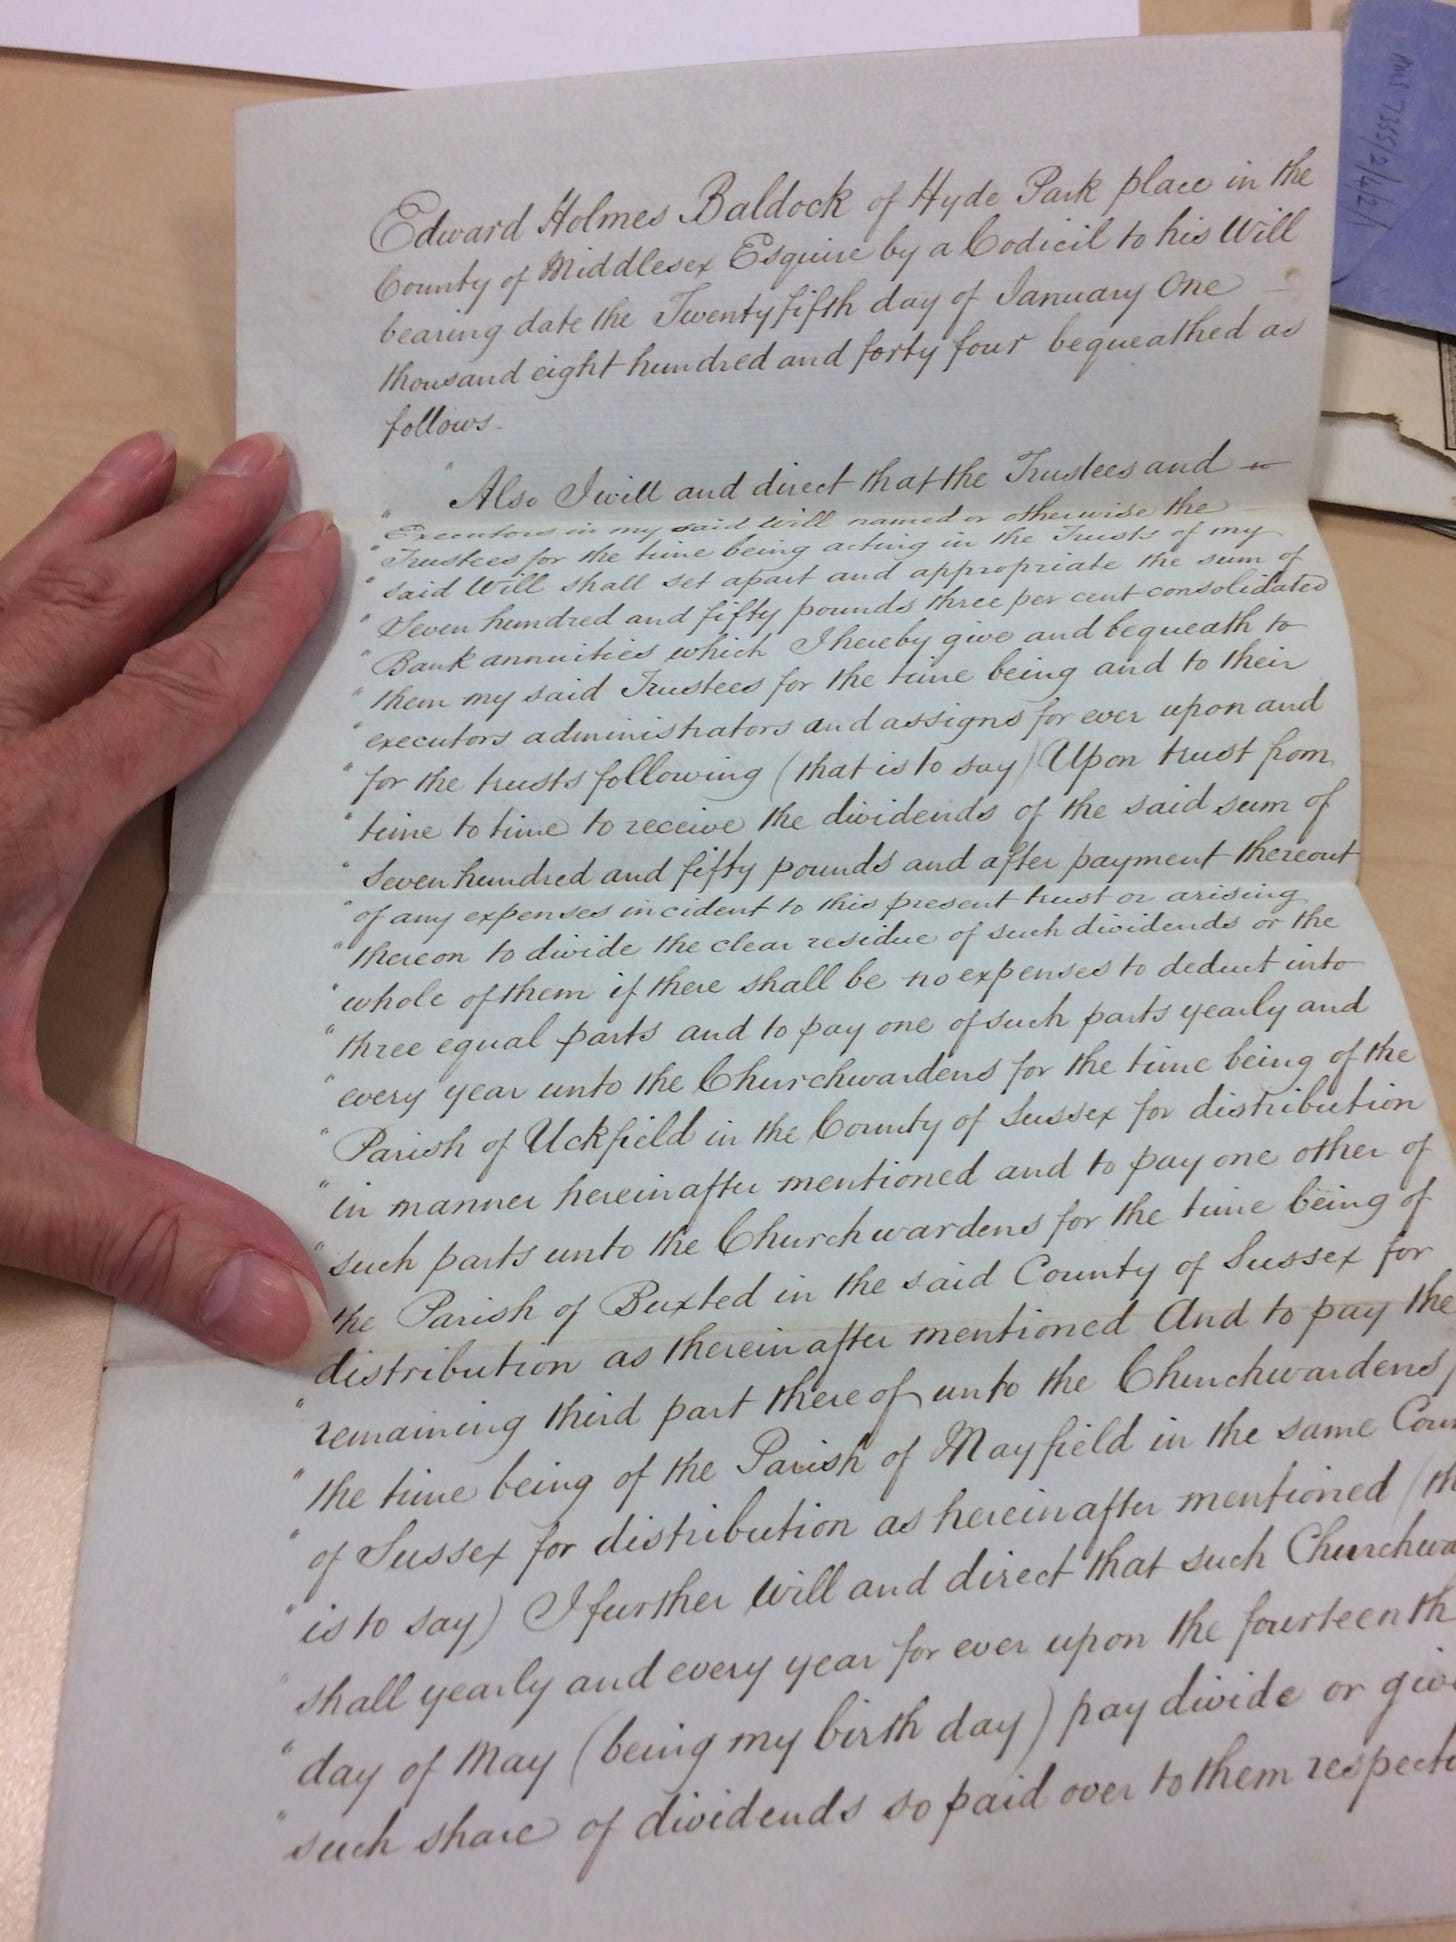 Edward Holmes Baldock of Hyde Park place in the
County of Middlesex Esquire by a Codicil to his Will
bearing date the Twenty fifth day of January One
thousand eight hundred and forty four bequeathed as
follows.
" Also I will and direct that the Trustees and
" Executors in my said Will named or otherwise the
" Trustees for the time being acting in the Trusts of my
" said Will shall set apart and appropriate the sum of
" Seven hundred and fifty pounds three per cent consolidated
" Bank annuities which I hereby give and bequeath to
" them my said Trustees for the time being and to their
" executors administrators and assigns for ever upon and
" for the trusts following (that is to say) Upon trust from
" time to time to receive the dividends of the said sum of
" Seven hundred and fifty pounds and after payment thereout
" of any expenses incident to this present trust or arising
" thereon to divide the clear residue of such dividends or the
" whole of them if there shall be no expenses to deduct into
" three equal parts and to pay one of such parts yearly and
" every year unto the Churchwardens for the time being of the
" Parish of Uckfield in the County of Sussex for distribution
" in manner hereinafter mentioned and to pay one other of
" such parts unto the Churchwardens for the time being of
the Parish of Buxted in the said County of Sussex for
distribution as thereinafter mentioned And to pay the
" remaining third part thereof unto the Churchwardens
" the time being of the Parish of Mayfield in the same Coun
" of Sussex for distribution as hereinafter mentioned (th
" is to say) I further will and direct that such Churchwa
" shall yearly and every year for ever upon the fourteenth
" day of May (being my birth day) pay divide or give
" such share of dividends so paid over to them respecti